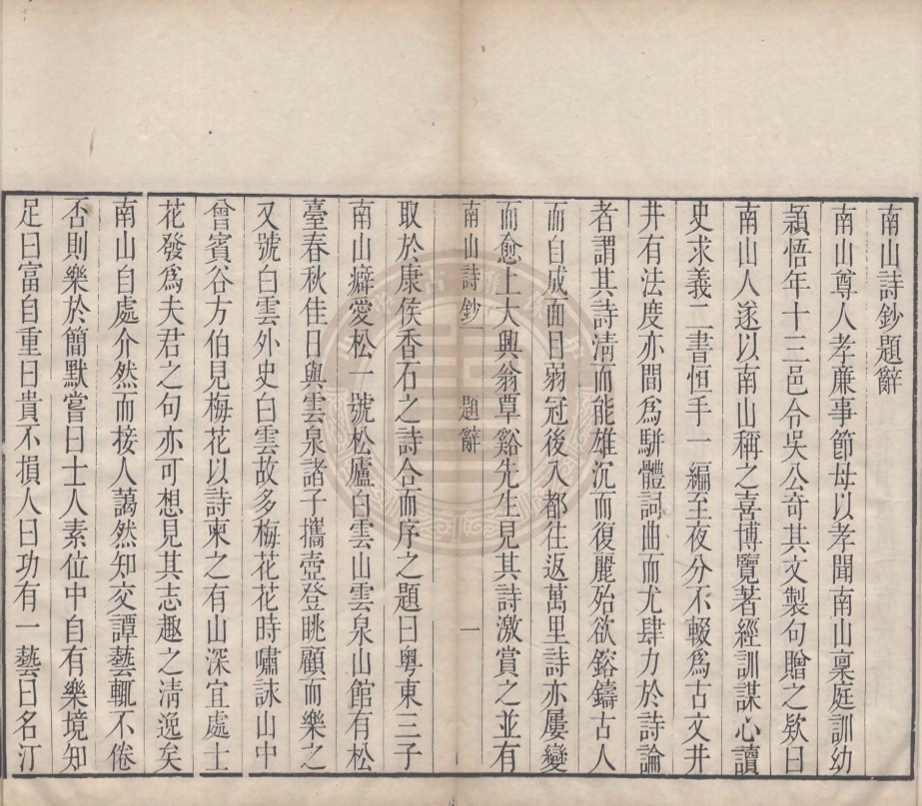 南山詩鈔題辭
南山尊人孝廉事節母以孝聞南山稟庭訓幼
穎悟年十三邑令吳公奇其文製句贈之欵曰
南山人遂以南山稱之喜博覽著經訓謀心讀
史求義二書恒手一編至夜分不輟爲古文井
井有法度亦間爲駢體詞曲而尤肆力於詩論
者謂其詩清而能雄沉而復麗殆欲鎔鑄古人
而自成面目弱冠後入都往返萬里詩亦屢變
而愈上大興翁覃谿先生見其詩激賞之並有
南山詩鈔 題辭 一
取於康侯香石之詩合而序之題曰粵東三子
南山癖愛松一號松廬白雲山雲泉山館有松
臺春秋佳日與雲泉諸子攜壺登眺顧而樂之
又號白雲外史白雲故多梅花花時嘯詠山中
曾賓谷方伯見梅花以詩柬之有山深宜處士
花發爲夫君之句亦可想見其志趣之清逸矣
南山自處介然而接人藹然知交譚藝輒不倦
否則樂於簡默嘗曰士人素位中自有樂境知
足曰富自重曰貴不損人曰功有一藝曰名汀